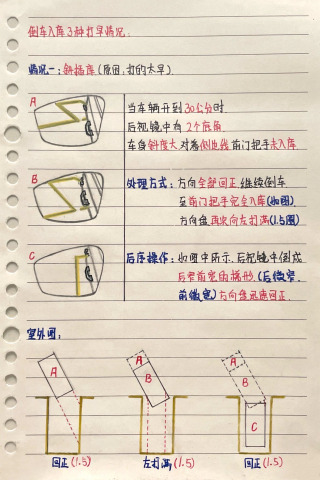 倒车入库3种打早情况:
情况一:斜插库(原因:打的太早)
A
当车辆开到30公分时
后视镜中有2个底角
车身斜度大,对角倒此线前门把手未入库.
B
处理方式:方向全部回正,继续倒车
至前门把手完全入库(如图)
方向盘再次向左打满(1.5圈)
C
后序操作:如图中所示,后视镜中倒成
后窄前宽的梯形.(后微窄,
前微宽)方向盘迅速回正.
室外图:
A
A
B
A
B
C
回正(1.5)
左打满(1.5)
回正(1.5)